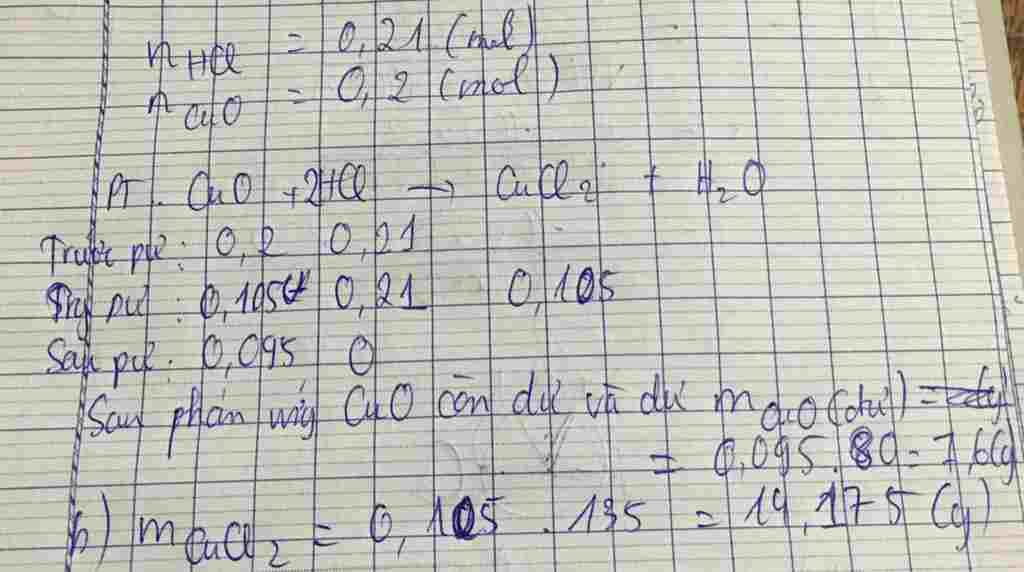 nHCl = 0,21 (mol)
nCuO = 0,2 (mol)
PT. CuO + 2HCl → CuCl2 + H2O
Trước pư: 0,2 0,21
Trg pư: 0,105 0,21 0,105
Sau pư: 0,095 0
Sau phản ứng CuO còn dư và dư mCuO(dư) =
= 0,095.80 = 7,6(g)
b) mCuCl2 = 0,105 . 135 = 14,175 (g)